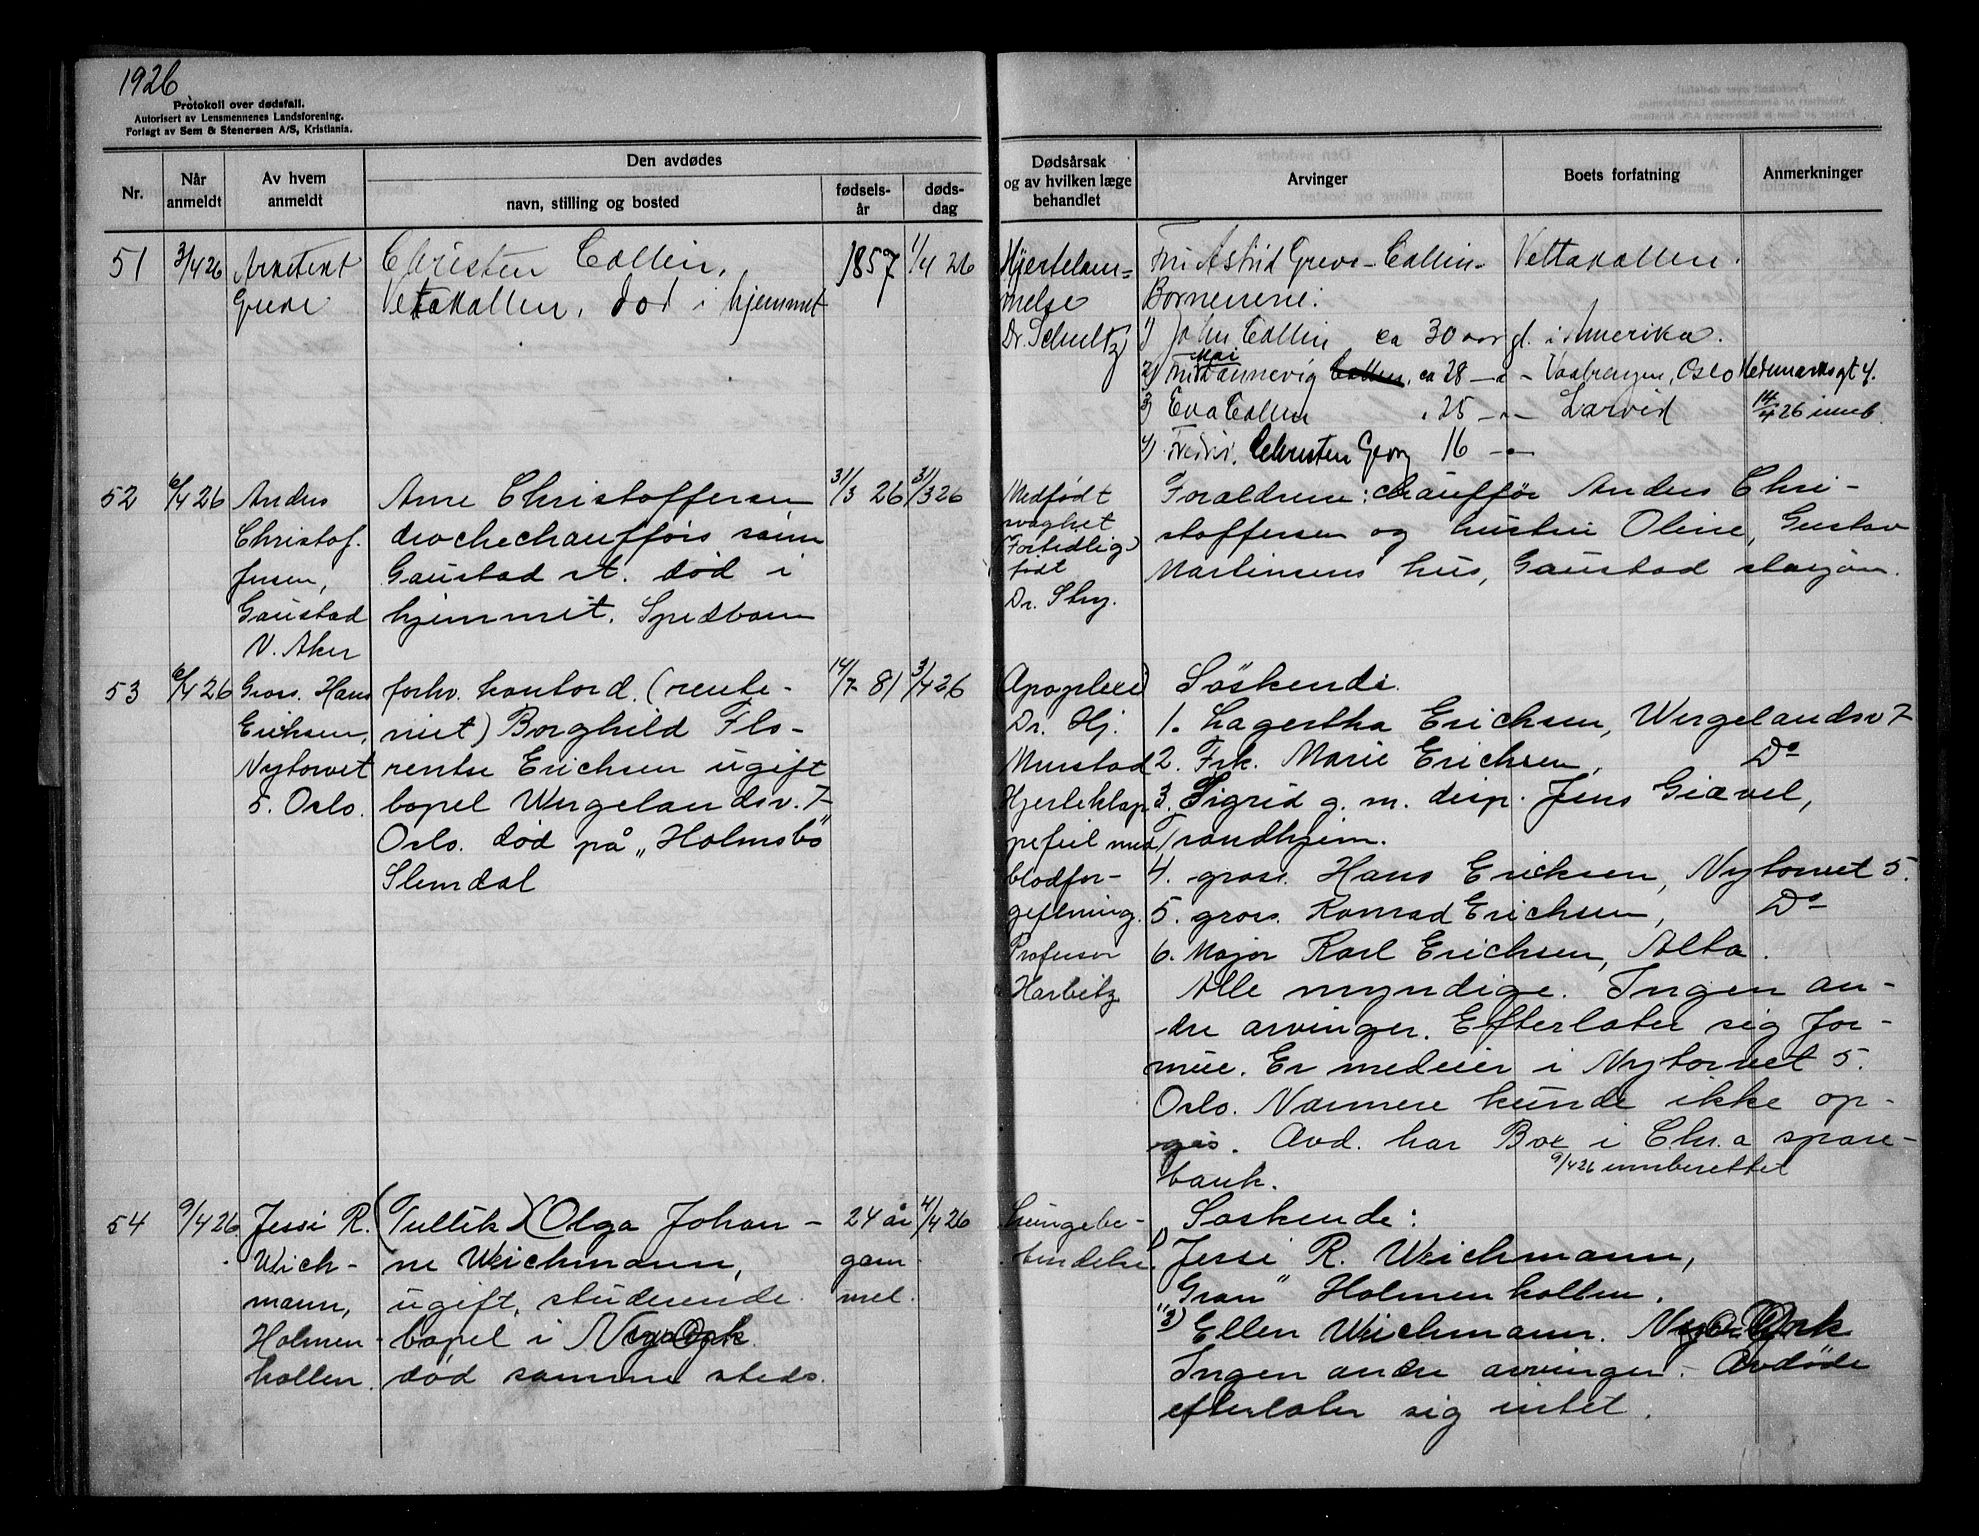 1926
Protokoll over dødsfall.
Autorisert av Lensmennenes Landsforening.
Forlagt av Sem & Stenersen A/S, Kristiania.
Nr.
Når anmeldt
Av hvem anmeldt
Den avdødes
navn, stilling og bosted
fødsels-år
døds-dag
Dødsårsak og av hvilken læge behandlet
Arvinger
Boets forfatning
Anmerkninger
51 3/4 26
Arkitekt
Greve
Christen Collin,
Vettakollen, død i hjemmet
1857 1/4 26
Hjertelam-
melse
Dr. Schultz
Fru Astrid Greve-Collin- Vettakollen.
Børnene:
1) John Collin ca 30 aar gl. i Amerika.
2) Fru Mai Wannevig Collin, ca 28 -"- Vaalerengen, Oslo Hedemarksgt 4.
3) Eva Collin " 25 -"- Larvik 14/4 26 innb.
4) Fredrik Christen Georg 16 -"-
52 6/4 26
Anders
Christof-
fersen,
Gaustad
V. Aker
Arne Christoffersen
drochechaufførs sønn
Gaustad st. død i
hjemmet. Spedbarn
31/3 26 31/3 26
Medfødt
svaghet
(Fortidlig
født)
Dr. Stry.
Foraldrene: chauffør Anders Chri-
stoffersen og hustru Oline, Gustav
Martinsens hus, Gaustad stasjon.
53 6/4 26
Gross. Hans
Erichsen,
Nytorvet
5. Oslo.
forhv. kontord. (rente-
nist) Borghild Flo-
rentse Erichsen ugift
bopel Wergelandsv. 7
Oslo. død på „Holmsbo"
Slemdal
14/7 81 3/4 26
Apoplexi)
Dr. Hj.
Mustad
Hjerteklap-
pefeil med
blodfor-
giftning.
Professor
Harbitz
Søskende.
1. Lagertha Erichsen, Wergelandsv 7
2. Frk. Marie Erichsen, Do
3. Sigrid g. m. disp. Jens Giævel,
Trondhjem.
4. gross. Hans Erichsen, Nytorvet 5.
5. gross. Konrad Erichsen, Do
6. Major Karl Erichsen, Alta.
Alle myndige. Ingen an-
dre arvinger. Efterlater sig for-
mue. Er medeier i Nytorvet 5.
Oslo. Nærmere kunde ikke op-
gis. Avd. har Box i Chr.a spare-
bank.
9/4 26 innberettet
54 9/4 26
Jessi R.
Weich-
mann,
Holmen-
kollen.
(Tullik) Olga Johan-
ne Weichmann,
ugift, studerende
bopel i New York
død samme steds.
24 år
gam-
mel.
4/4 26
Lungebe-
tendelse.
Søskende:
1) Jessi R. Weichmann,
„Gran" Holmenkollen.
2) Ellen Weichmann. New York
Ingen andre arvinger. Avdøde
efterlater sig intet.